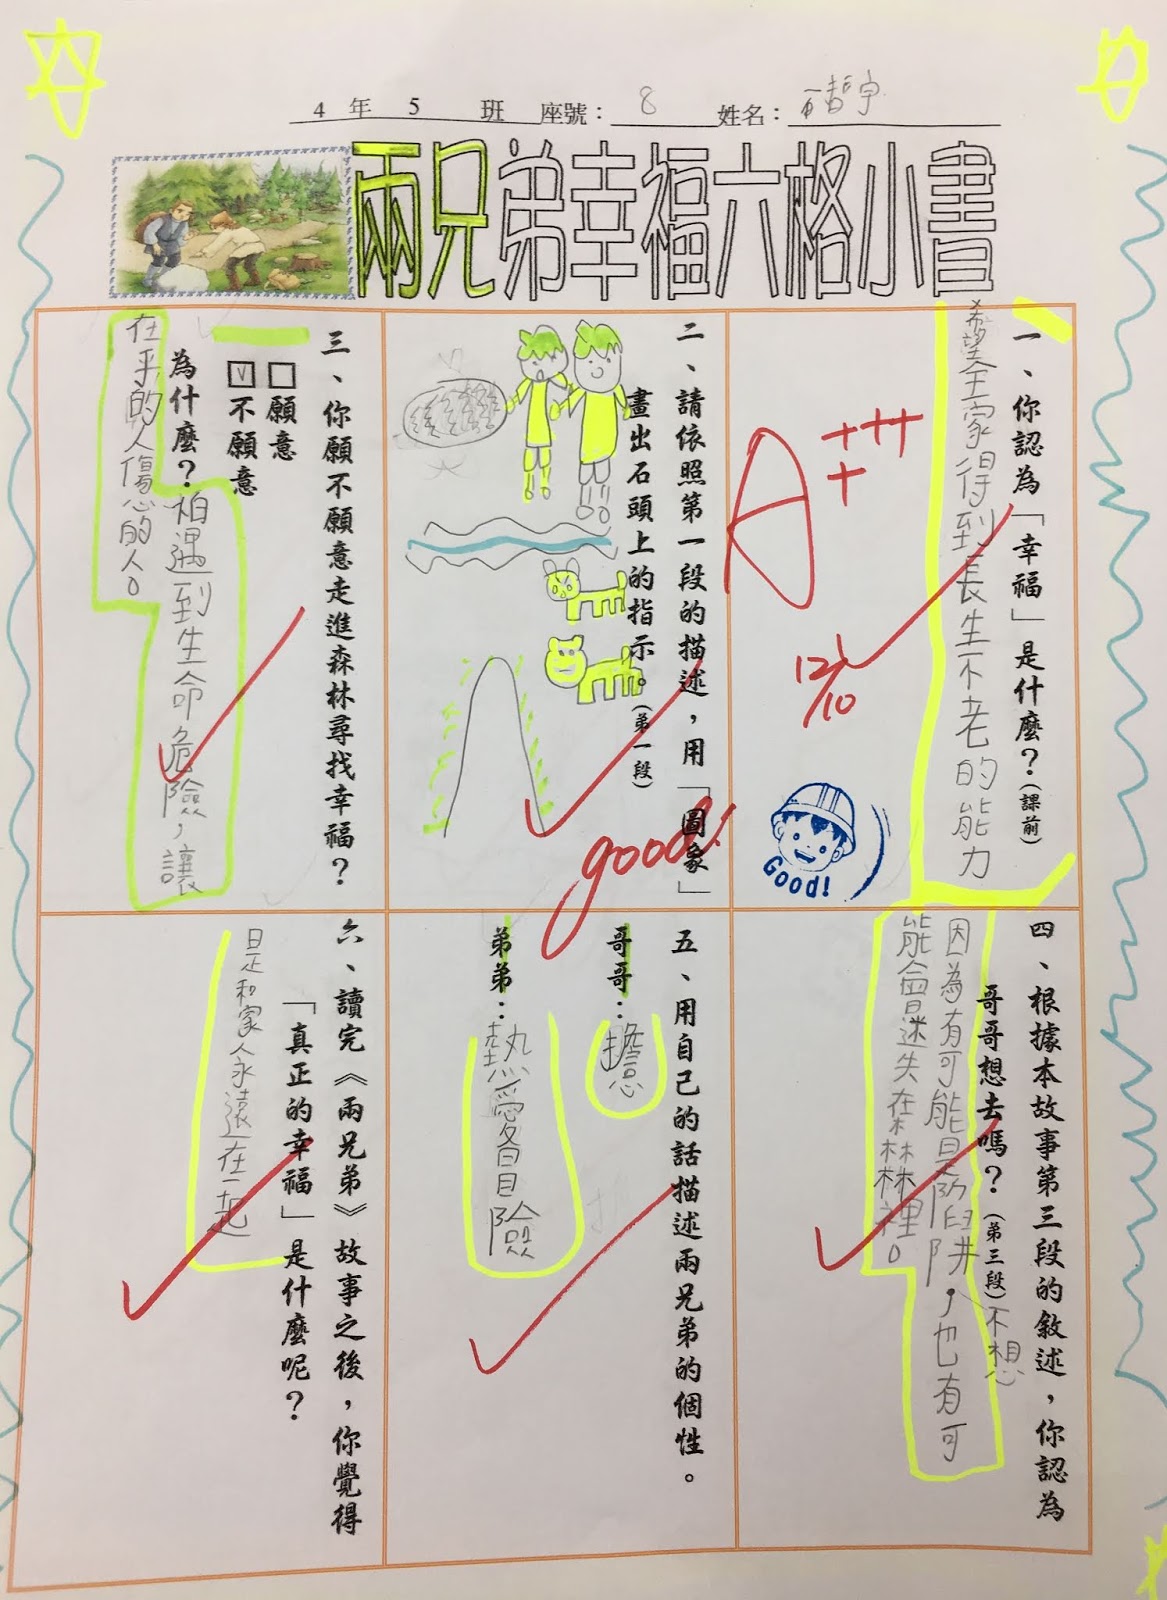 4 年 5 班 座號：8 姓名：
兩兄弟幸福六格小書
一、你認為「幸福」是什麼？(課前)
希望全家得到長生不老的能力
A++++
12/10
Good!
二、請依照第一段的描述，用「圖象」
畫出石頭上的指示。(第一段)
good!
三、你願不願意走進森林尋找幸福？
□願意
☑不願意
為什麼？怕遇到生命危險，讓
在乎的人傷心的人。
四、根據本故事第三段的敘述，你認為
哥哥想去嗎？(第三段)不想
因為有可能是陷阱，也有可
能會迷失在森林裡。
五、用自己的話描述兩兄弟的個性。
哥哥：擔
弟弟：熱愛冒險
六、讀完《兩兄弟》故事之後，你覺得
「真正的幸福」是什麼呢？
是和家人永遠在一起